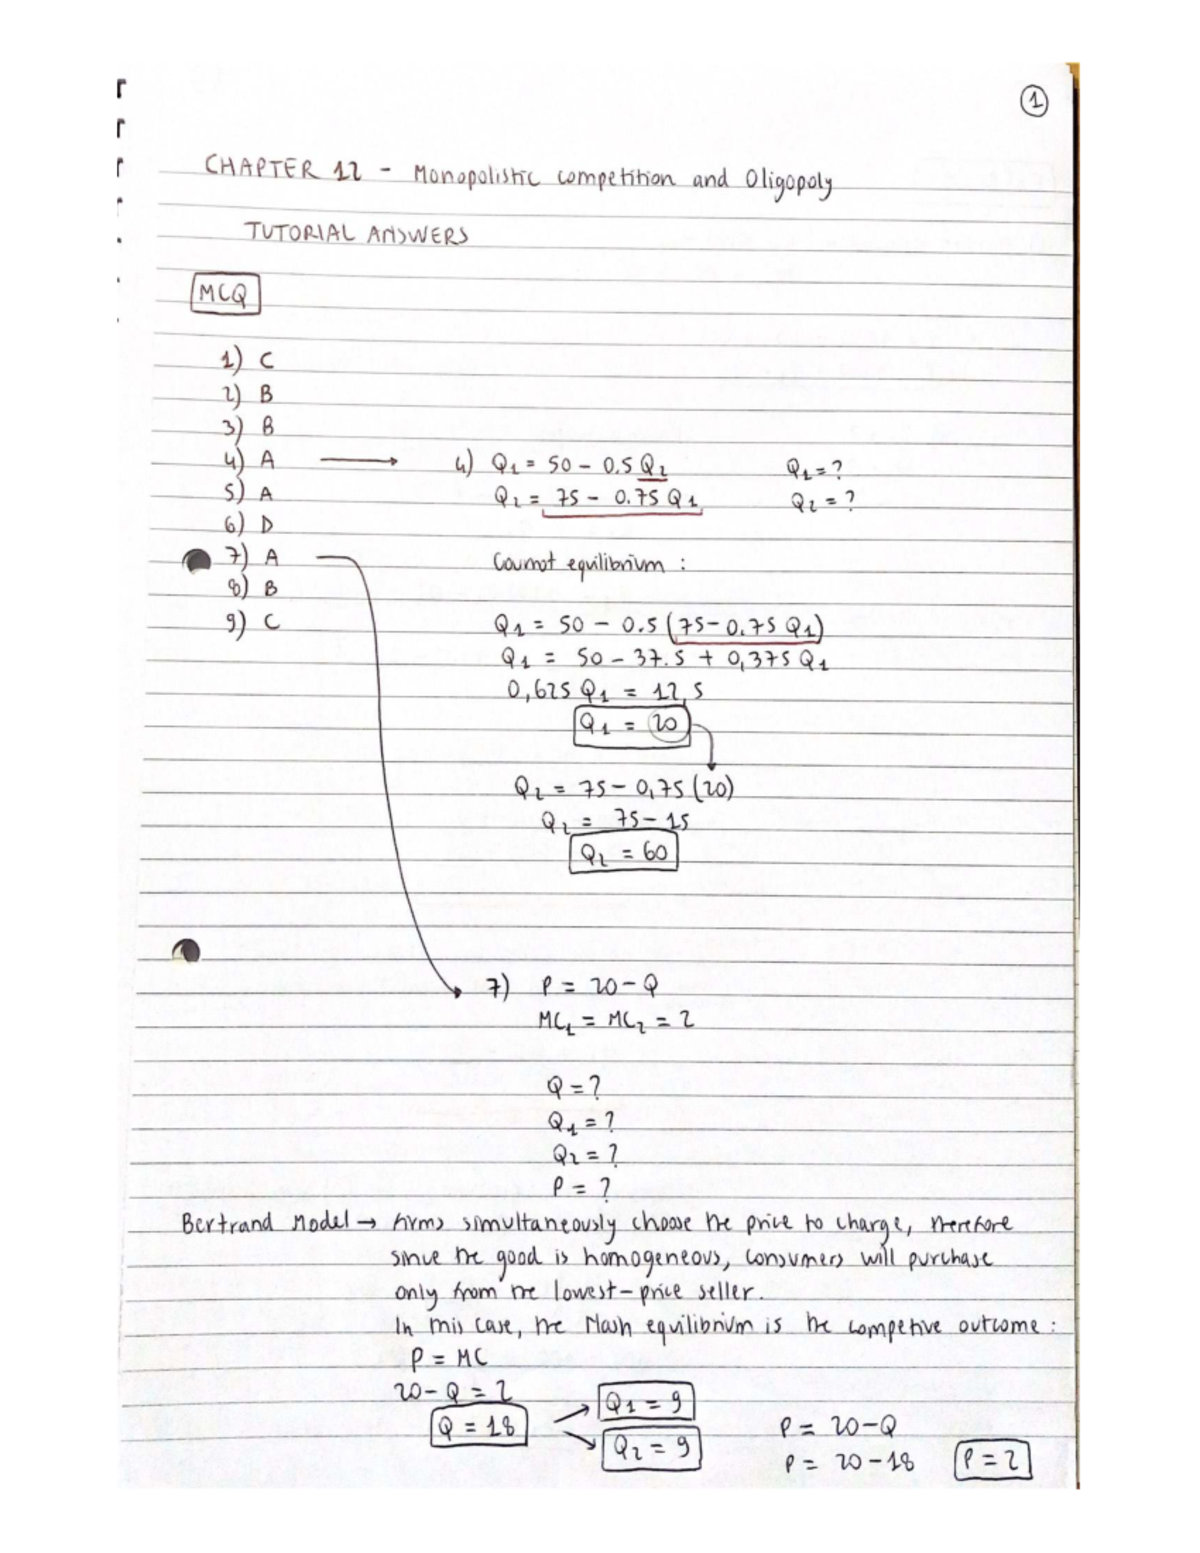 1
CHAPTER 12 - Monopolistic competition and Oligopoly
TUTORIAL ANSWERS
MCQ
1) C
2) B
3) B
4) A
5) A
6) D
7) A
8) B
9) C
4) Q1 = 50 - 0.5 Q2 Q1 = ?
Q2 = 75 - 0.75 Q1 Q2 = ?
Cournot equilibrium :
Q1 = 50 - 0.5 (75 - 0.75 Q1)
Q1 = 50 - 37.5 + 0,375 Q1
0,625 Q1 = 12,5
Q1 = 20
Q2 = 75 - 0,75 (20)
Q2 = 75 - 15
Q2 = 60
7) P = 20 - Q
MC1 = MC2 = 2
Q = ?
Q1 = ?
Q2 = ?
P = ?
Bertrand Model → firms simultaneously choose the price to charge, therefore
since the good is homogeneous, consumers will purchase
only from the lowest-price seller.
In this case, the Nash equilibrium is the competive outcome :
P = MC
20 - Q = 2
Q = 18
Q1 = 9
Q2 = 9
P = 20 - Q
P = 20 - 18 P = 2